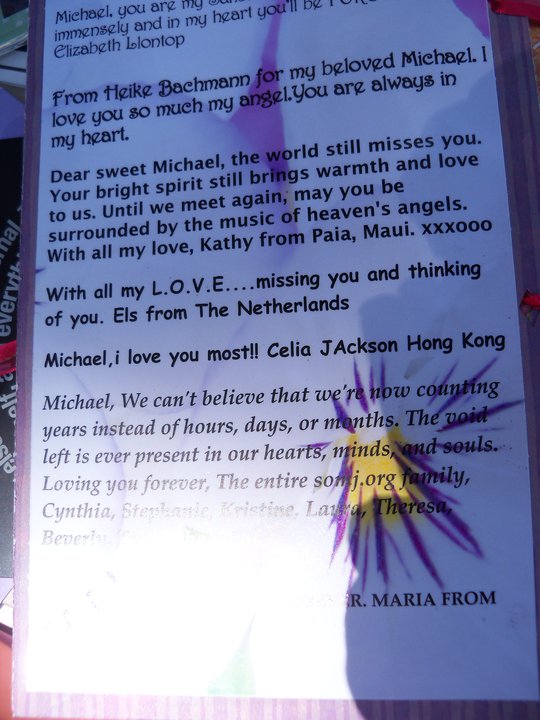 Michael, you are my
immensely and in my heart you'll be
Elizabeth Llontop
From Heike Bachmann for my beloved Michael. I
love you so much my angel.You are always in
my heart.
Dear sweet Michael, the world still misses you.
Your bright spirit still brings warmth and love
to us. Until we meet again, may you be
surrounded by the music of heaven's angels.
With all my love, Kathy from Paia, Maui. xxxooo
With all my L.O.V.E....missing you and thinking
of you. Els from The Netherlands
Michael,i love you most!! Celia JAckson Hong Kong
Michael, We can't believe that we're now counting
years instead of hours, days, or months. The void
left is ever present in our hearts, minds, and souls.
Loving you forever, The entire somj.org family,
Cynthia, Stephanie, Kristine, Laura, Theresa,
Beverly,
MARIA FROM
everything